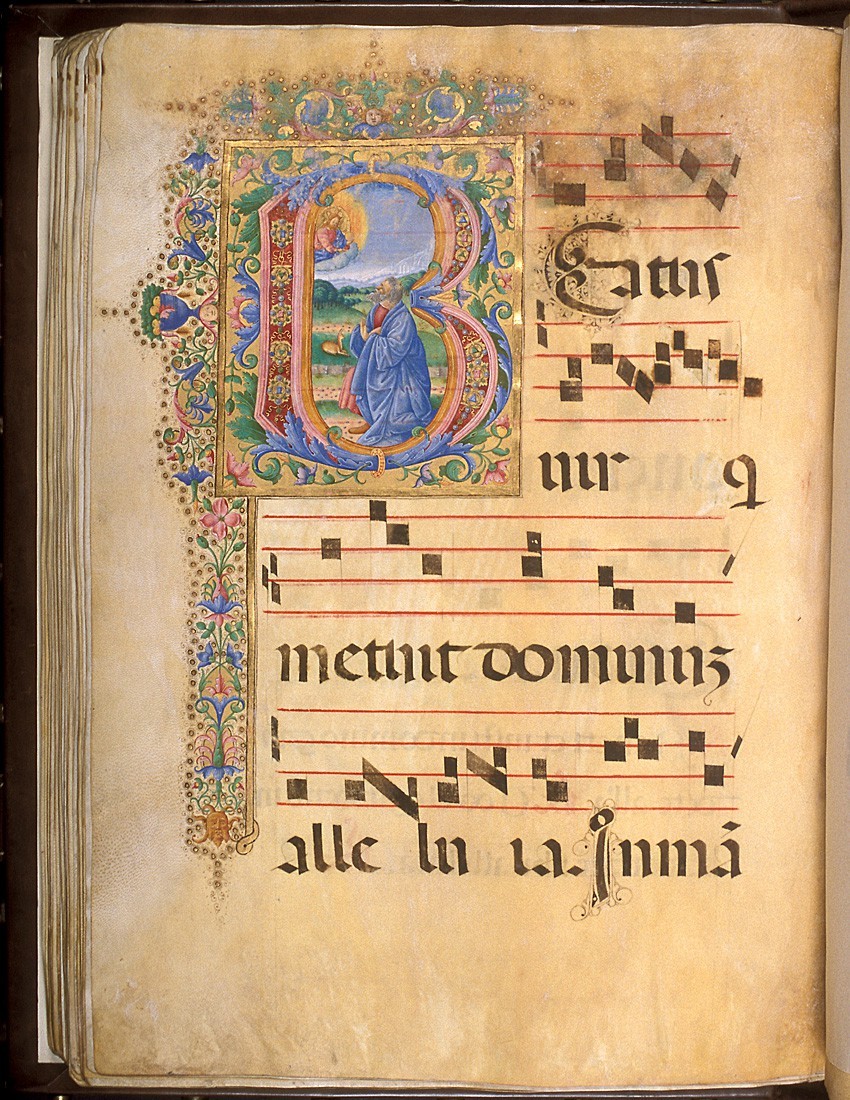 BEatus
uir q
metuit dominuʒ
alle lu ia. Inmā